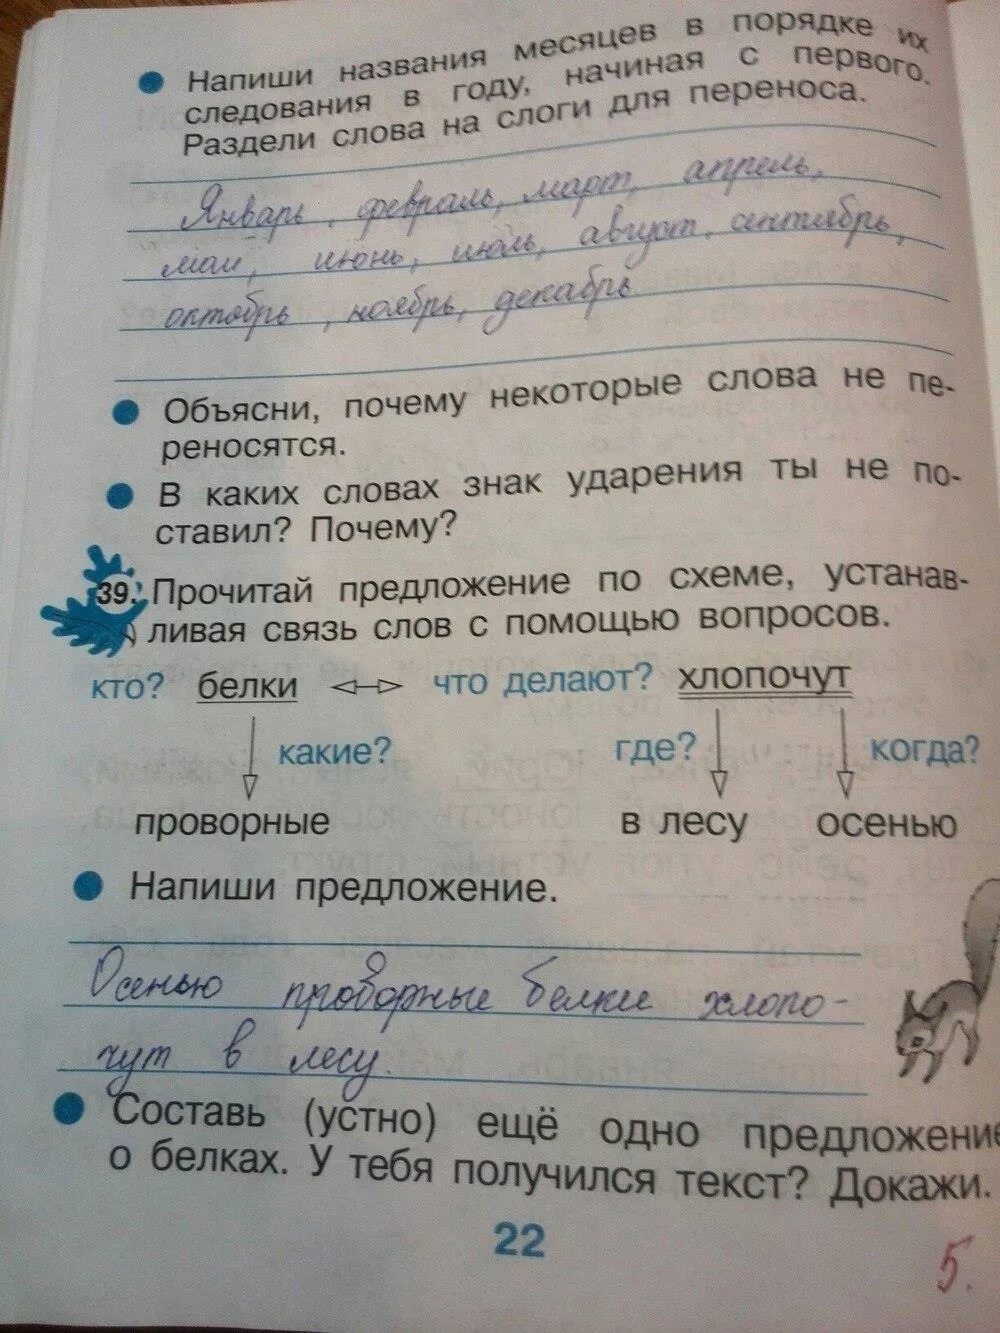 Напиши названия месяцев в порядке их
следования в году, начиная с первого.
Раздели слова на слоги для переноса.
Январь, февраль, март, апрель,
май, июнь, июль, август, сентябрь,
октябрь, ноябрь, декабрь
Объясни, почему некоторые слова не пе-
реносятся.
В каких словах знак ударения ты не по-
ставил? Почему?
39. Прочитай предложение по схеме, устанав-
ливая связь слов с помощью вопросов.
кто? белки что делают? хлопочут
какие? где? когда?
проворные в лесу осенью
Напиши предложение.
Осенью проворные белки хлопо-
чут в лесу.
Составь (устно) ещё одно предложение
о белках. У тебя получился текст? Докажи.
22
5.